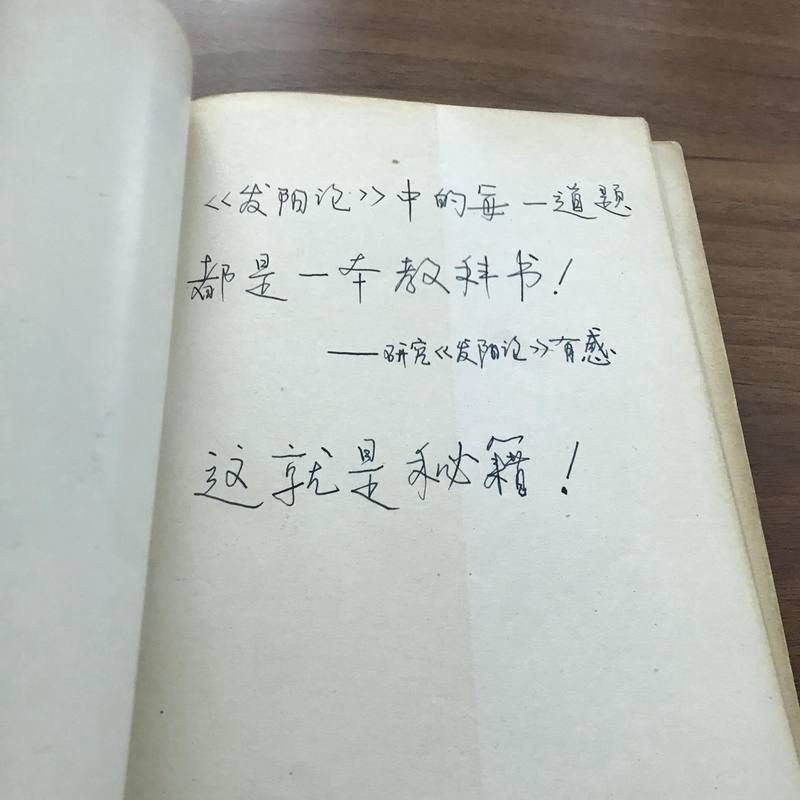 《发阳论》中的每一道题
都是一本教科书！
——研究《发阳论》有感
这就是秘籍！